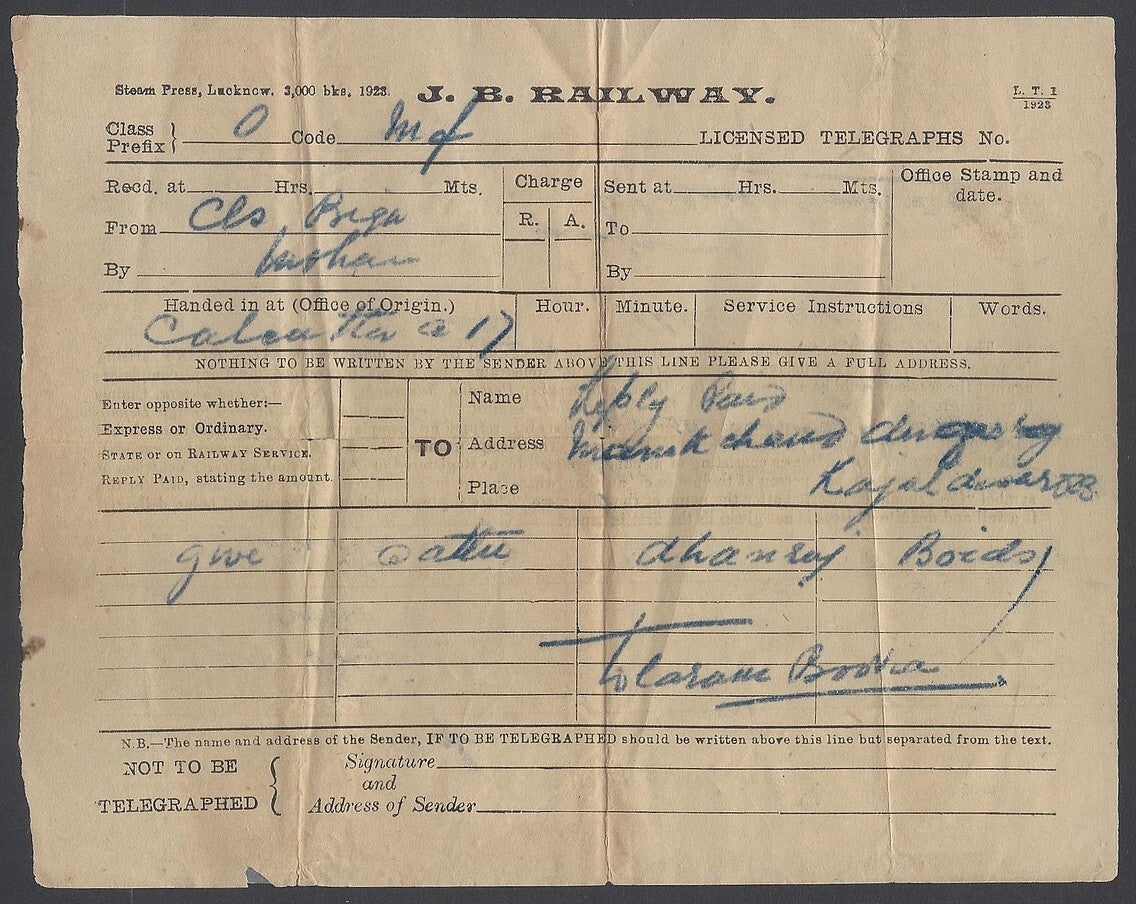 Steam Press, Lucknow. 3,000 bks. 1923. J. B. RAILWAY. L. T. 1
1923
Class
Prefix } O Code LICENSED TELEGRAPHS No.
Recd. at Hrs. Mts. Charge Sent at Hrs. Mts. Office Stamp and
date.
From Cls R. A. To
By Mohan By
Handed in at (Office of Origin.) Hour. Minute. Service Instructions Words.
Calcutta 17
NOTHING TO BE WRITTEN BY THE SENDER ABOVE THIS LINE PLEASE GIVE A FULL ADDRESS.
Enter opposite whether:—
Express or Ordinary.
STATE or on RAILWAY SERVICE.
REPLY PAID, stating the amount.
TO
Name Reply Paid
Address Manik chand
Place
give dhanraj Boids
Tolaram
N.B.—The name and address of the Sender, IF TO BE TELEGRAPHED should be written above this line but separated from the text.
NOT TO BE
TELEGRAPHED {
Signature
and
Address of Sender